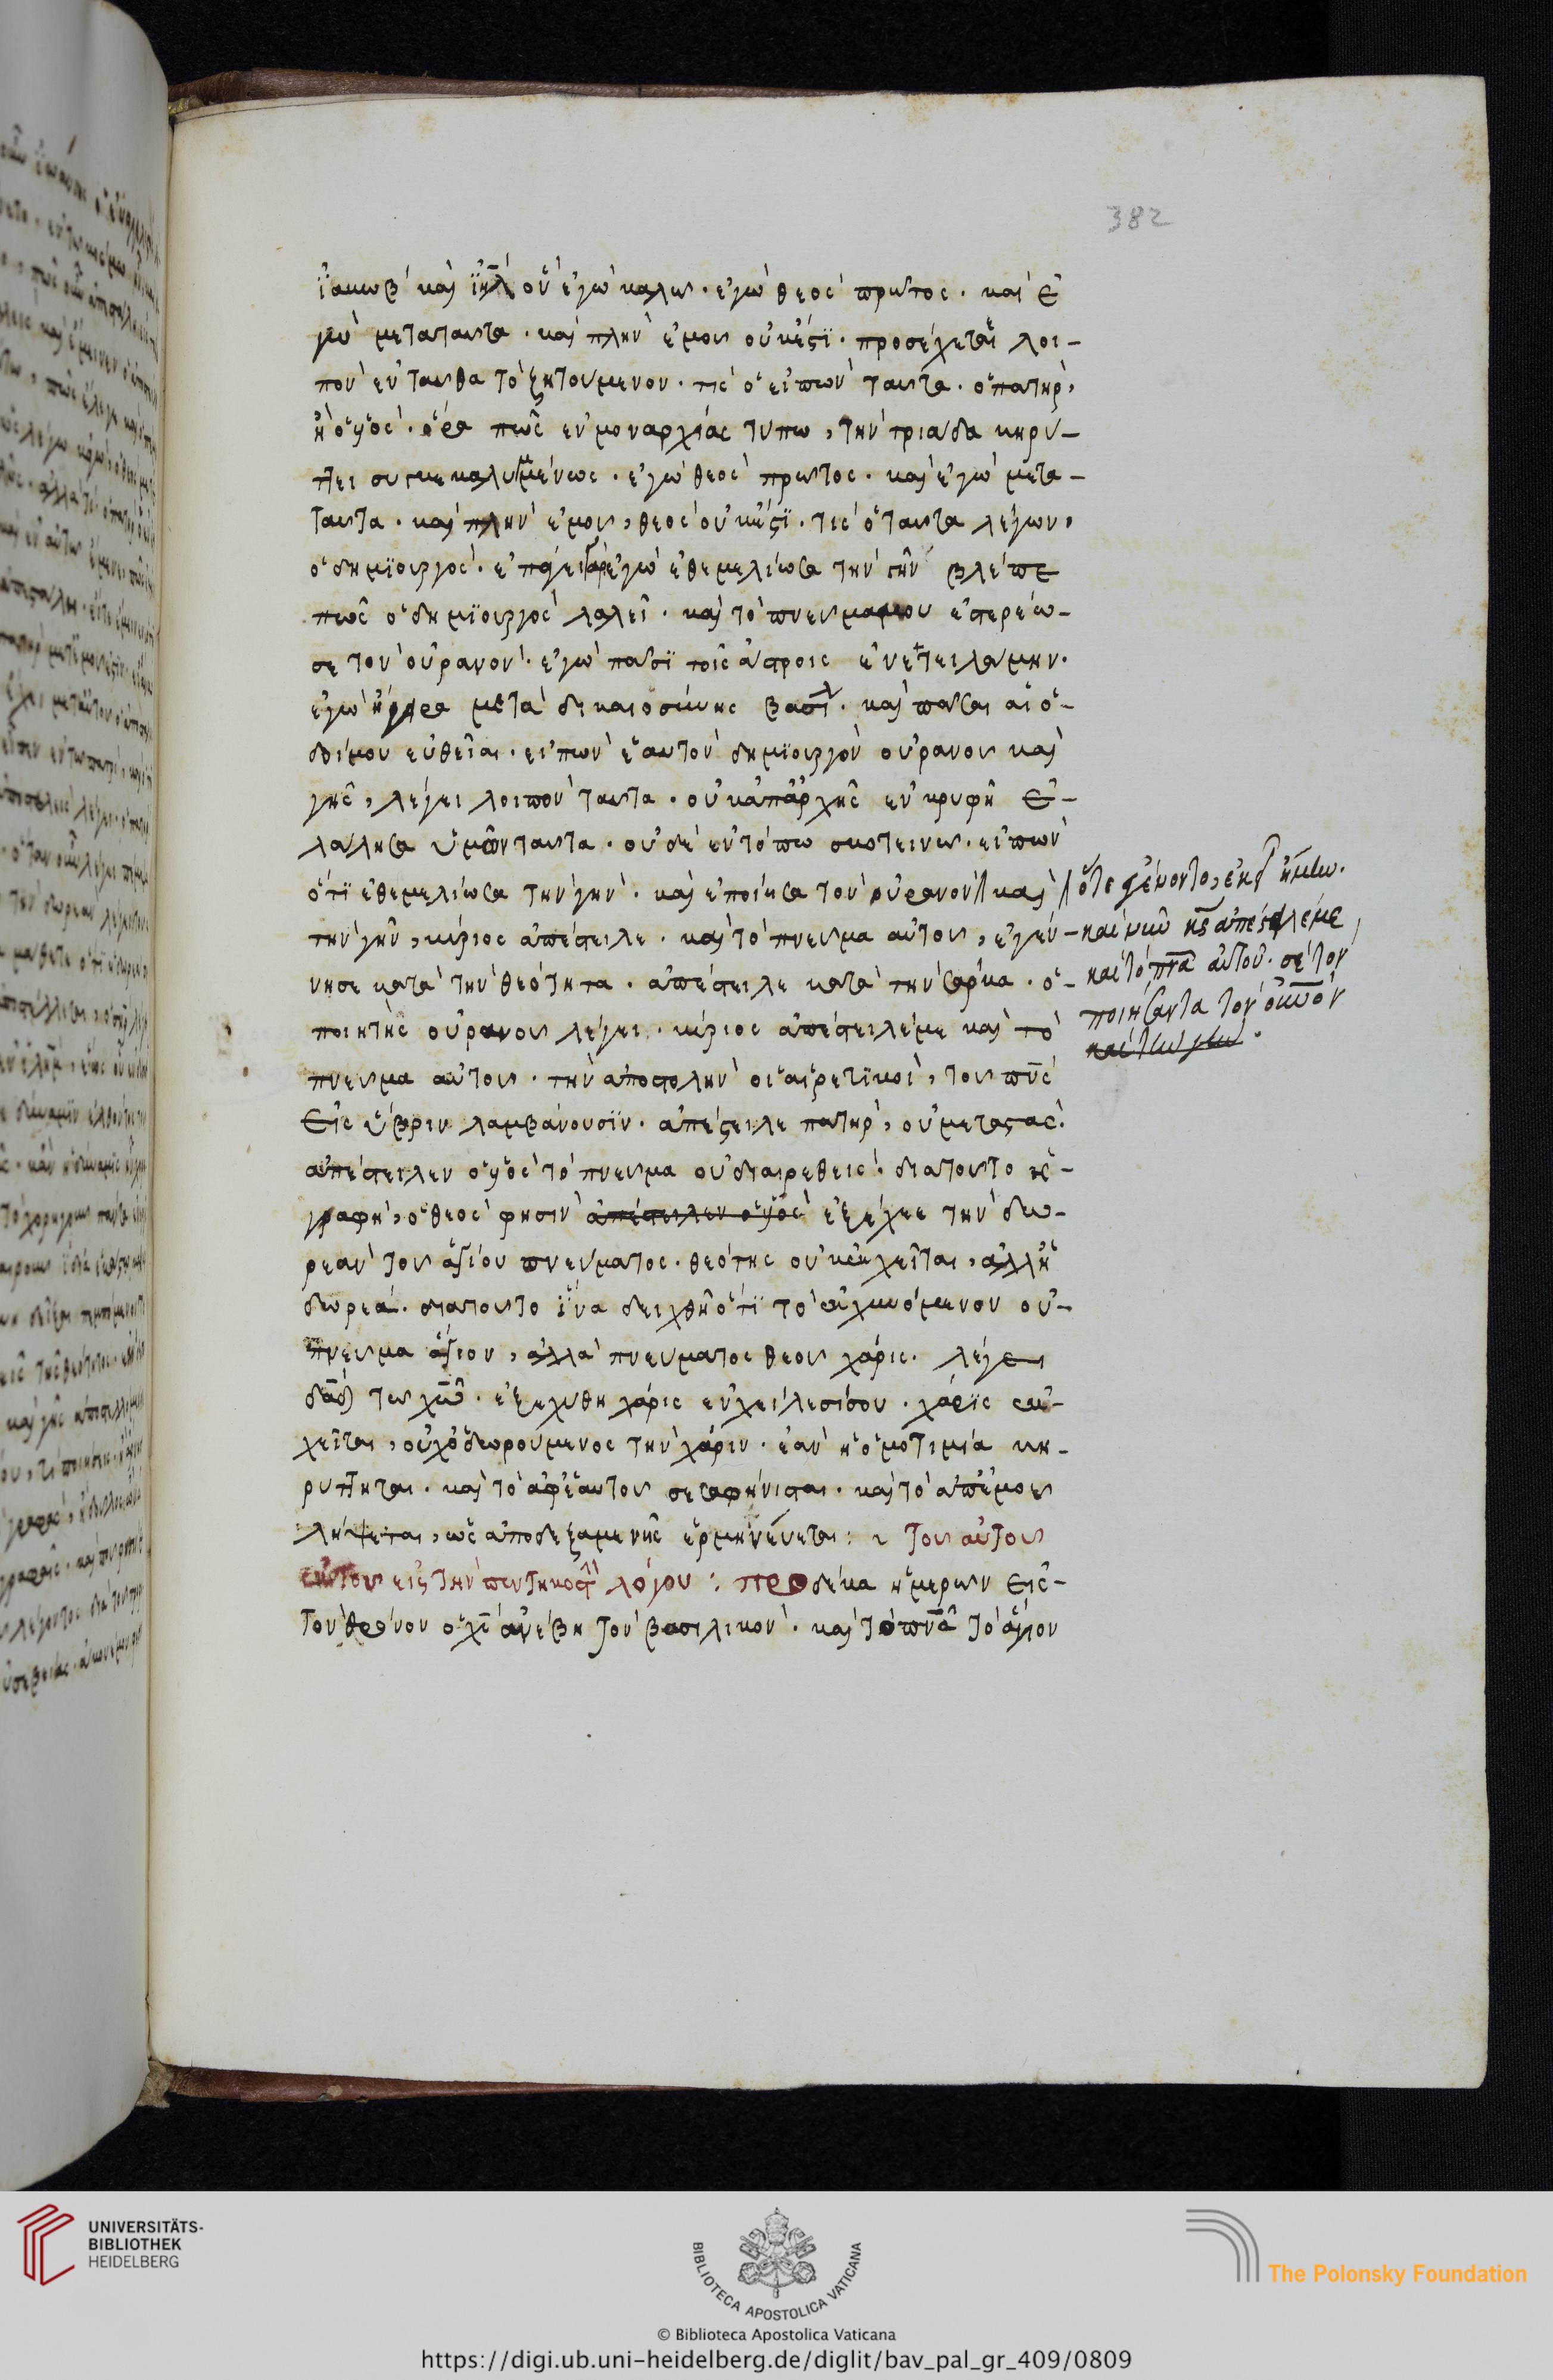 382
ἰακωβ' καὶ ἰηλ ὃν ἐγὼ καλω. ἐγὼ θεος πρωτος. και ἐ
γω μεταταυτα. καὶ πλην ἐμου οὐκ ἔστϊ. προσέχεται λοι-
πον ἐνταυθα το ζητουμενον. τις ὁ εἰπων ταυτα. ὁ πατηρ,
ἢ ὁ υἱος. ὅρα πως ἐν μοναρχίας τυπω, την τριάδα κηρυ-
ττει συγκεκαλυμμένως. ἐγω θεος πρωτος. καὶ ἐγω μετα-
ταυτα. καὶ πλην ἐμου, θεος οὐκ ἔστϊ. τις ὁ ταυτα λέγων,
ὁ δημϊουργος. ἐπάγει γαρ ἐγω ἐθεμελίωσα την γην βλέπε
πως ὁ δημϊουργος λαλεῖ. καὶ το πνευμα μου ἐστερέω-
σε τον οὐρανον. ἐγω πασϊ τοις ἄστροις ἐνετειλάμην.
ἐγω ἤγειρα μετα δικαιοσύνης βασιλ. καὶ πασαι αἱ ὁ-
δοί μου εὐθεῖαι. εἰπων ἑαυτον δημϊουργον οὐρανου καὶ
γης, λέγει λοιπον ταυτα. οὐκ ἀπ' ἀρχης ἐν κρυφη ἐ-
λάλησα ὑμῖν ταυτα. οὐδε ἐν τόπω σκοτεινω. εἰπων
ὅτϊ ἐθεμελίωσα την γην. καὶ ἐποίησα τον οὐρανον // καὶ
την γην, κύριος ἀπέστειλε. καὶ το πνευμα αὐτου, ἐγέν-
νησε κατα την θεότητα. ἀπέστειλε κατα την σάρκα. ὁ-
ποιητης οὐρανου λέγει. κύριος ἀπέστειλέ με καὶ το
πνευμα αὐτου. την ἀποστολην οἱ αἱρετϊκοι, του πν̅ς
εἰς ὕβριν λαμβάνουσϊν. ἀπέστειλε πατηρ, οὐ μεταστας.
ἀπέστειλεν ὁ υἱος το πνευμα οὐ διαιρεθεις. διατουτο ἡ-
γραφη, ὁ θεος φησιν ἀπέστειλεν ὁ υἱος ἐξέχεε την δω-
ρεαν του ἁγίου πνεύματος. θεότης οὐκ ἐκχεῖται, ἀλλ' ἡ
δωρεά. διατουτο ἵνα δειχθῆ ὅτϊ το ἐκχυνόμενον οὐ-
πνευμα ἅγιον, ἀλλα πνευματος θεου χάρις. λέγει
δᾱδ τω χω. ἐξεχυθη χάρις ἐν χείλεσί σου. χάρϊς ἐκ-
χεῖται, οὐχ ὁ δωρούμενος την χάριν. ἐαν ἡ ὁμοτιμία κη-
ρυττηται. καὶ το ἀφ' ἑαυτου σεσαφήνισται. καὶ το ἀπ' ἐμου
λήψεται, ὡς ἀποδεξαμενης ἑρμηνεύεται: του αὐτου
ἐκ του εἰς την πεντηκοστ λόγου: προ δέκα ἡμερων εἰς-
τον θρόνον ὁ χς ἀνέβη τον βασιλικον. καὶ το πνα το ἅγιον
ὅτε ἐγένοντο, ἐκεῖ ἤμην.
καὶ νῦν κς ἀπέσταλέ με,
καὶ τὸ πνα αὐτοῦ. σὲ τὸν
ποιήσαντα τὸν οὐνον
καὶ τὴν γὴν.
UNIVERSITÄTS-
BIBLIOTHEK
HEIDELBERG
BIBLIOTECA APOSTOLICA VATICANA
The Polonsky Foundation
© Biblioteca Apostolica Vaticana
https://digi.ub.uni-heidelberg.de/diglit/bav_pal_gr_409/0809